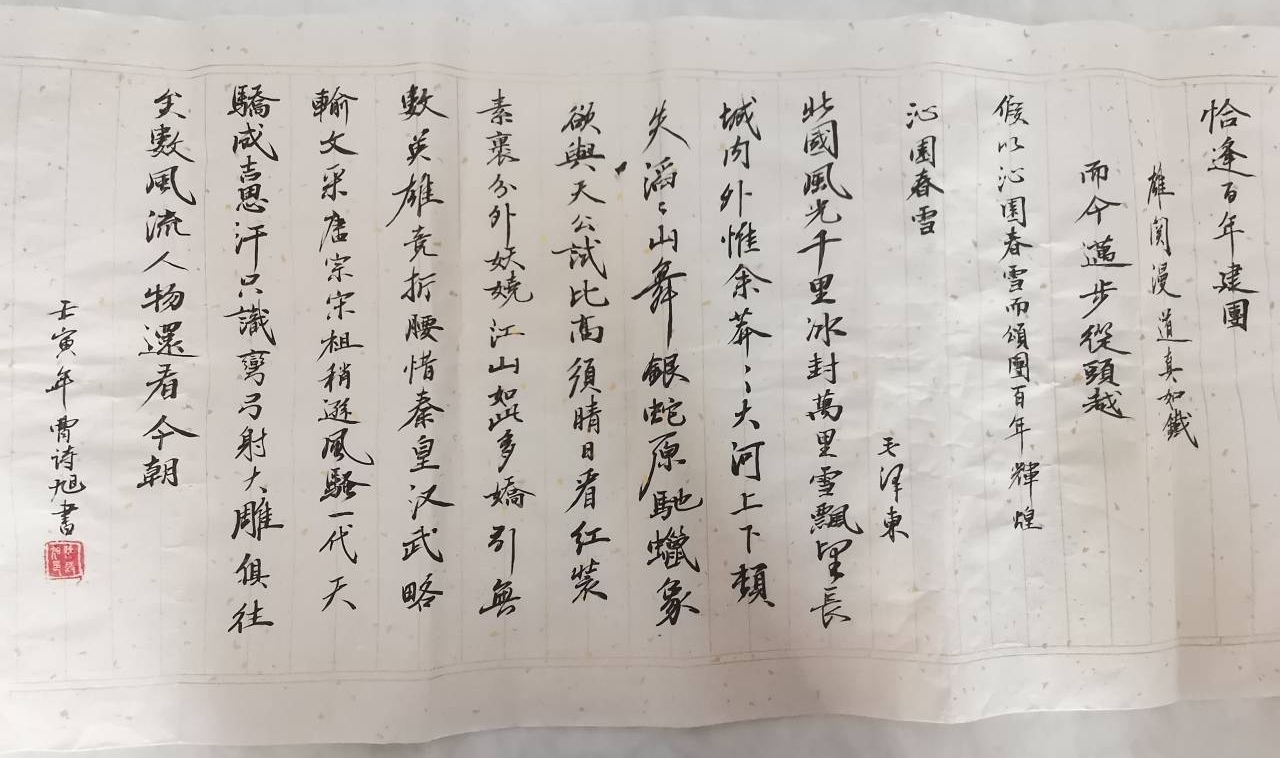 恰逢百年建團
雄関漫道真如鐵
而今邁步從頭越
候以沁園春雪而頌團百年輝煌
沁園春雪
毛泽東
北國風光千里冰封萬里雪飄望長
城内外惟余莽〻大河上下頓
失滔〻山舞銀蛇原馳蠟象
欲與天公試比高須晴日看红裝
素裹分外妖嬈江山如此多嬌引無
數英雄竞折腰惜秦皇汉武略
輸文采唐宗宋祖稍遜風騷一代天
驕成吉思汗只識彎弓射大雕俱往
矣數風流人物還看今朝
壬寅年曹诗旭書